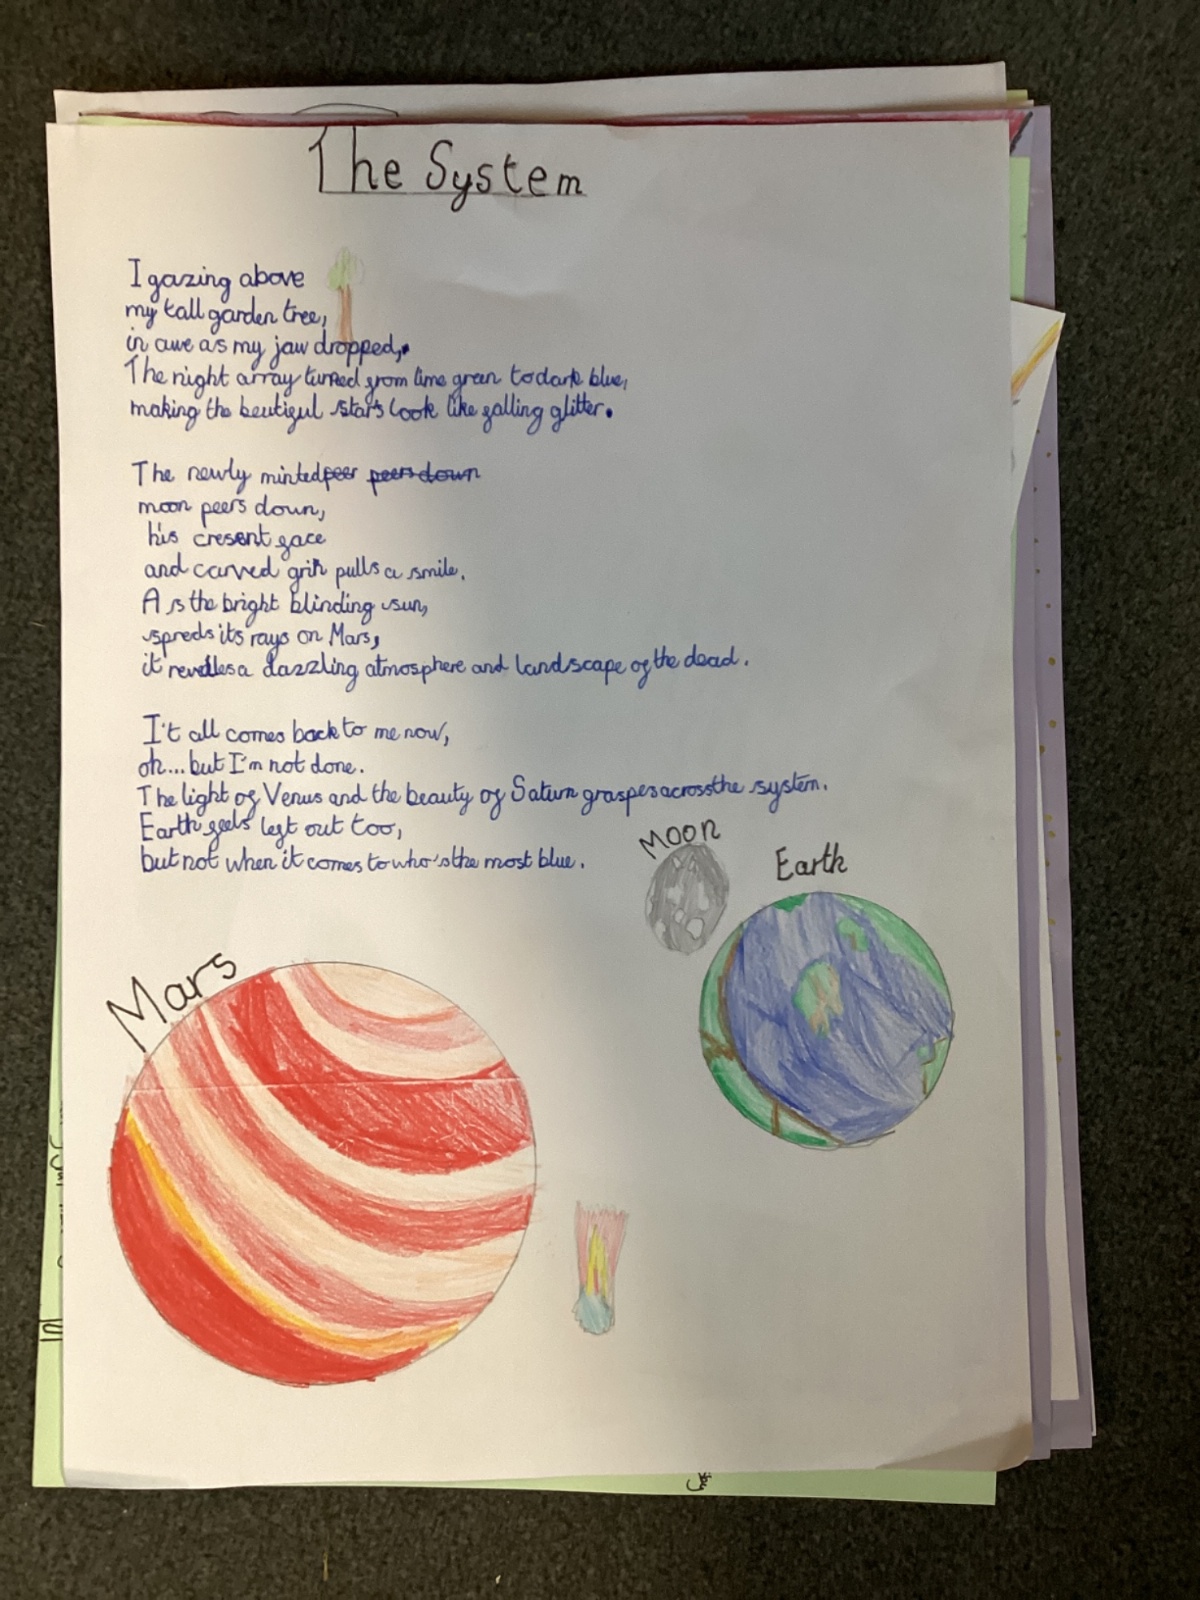 The System
I gazing above
my tall garden tree,
in awe as my jaw dropped,
The night array turned from lime green to dark blue,
making the beutiful stars look like falling glitter.
The newly minted peer peers down
moon peers down,
his cresent face
and carved grin pulls a smile.
As the bright blinding sun,
spreds its rays on Mars,
it reveles a dazzling atmosphere and landscape of the dead.
I't all comes back to me now,
oh... but I'm not done.
The light of Venus and the beauty of Saturn graspes across the system.
Earth feels left out too,
but not when it comes to who's the most blue.
Moon
Earth
Mars